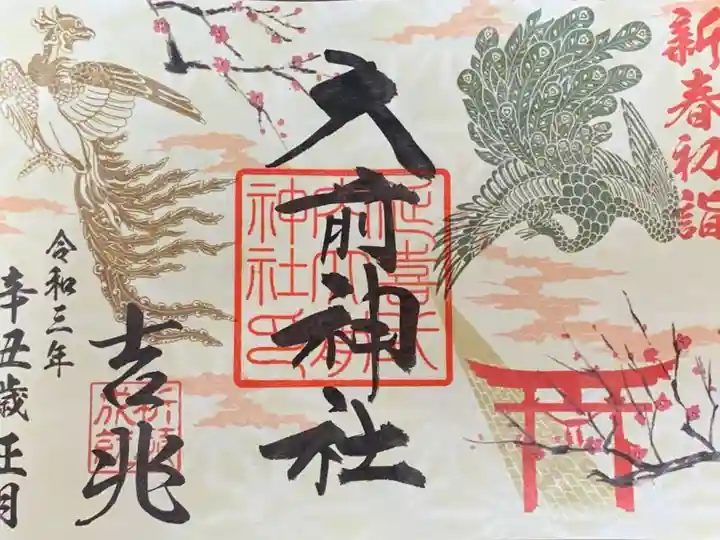 新春初詣
大前神社
延喜式
神社印
吉兆
令和三年
辛丑歳正月